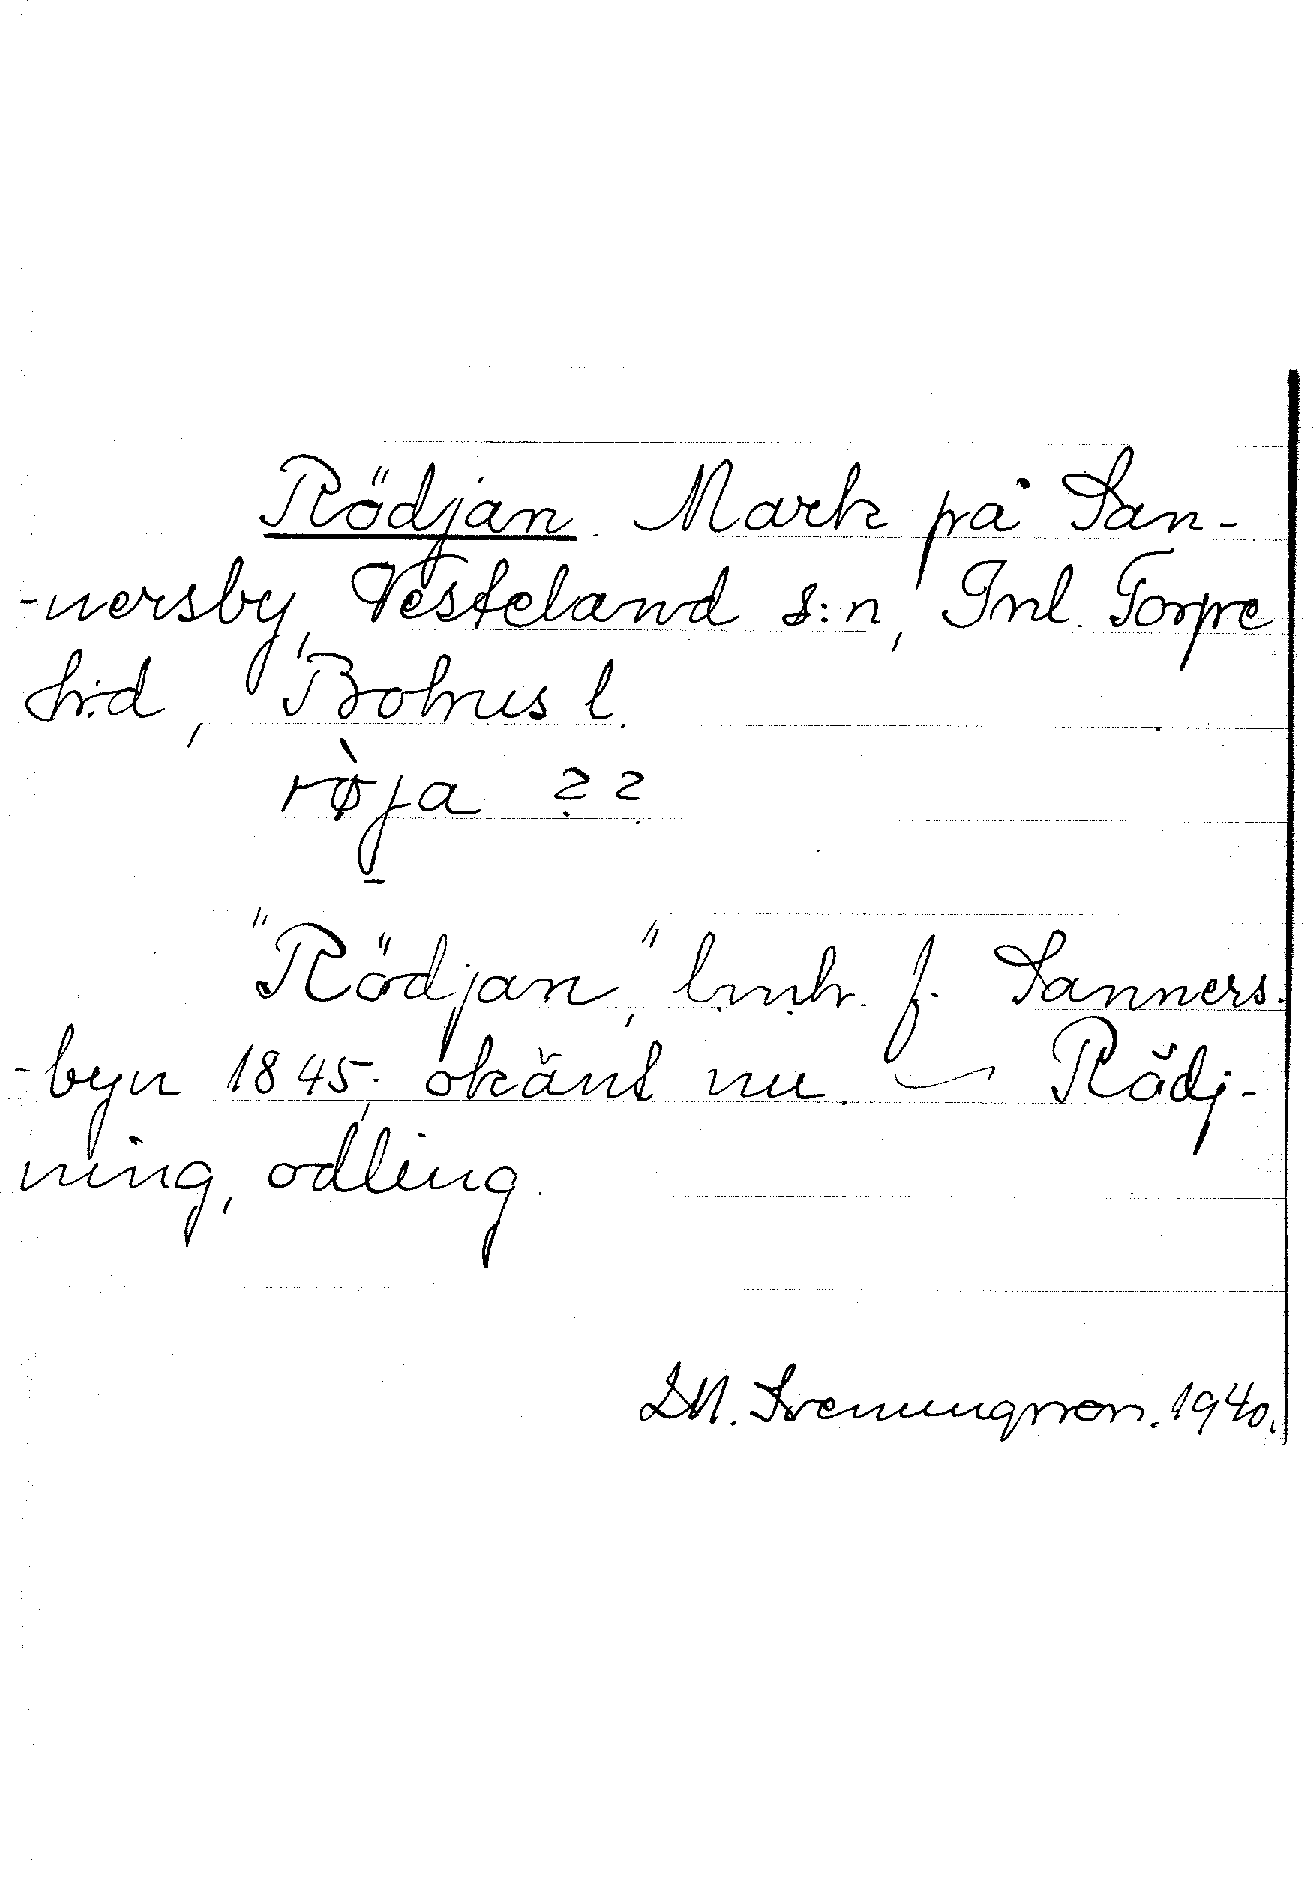 Rödjan Mark på San-
-nersby, Vesteland s:n, Inl. Torpe
h:d, Bohus l.
rø̀ja ??
"Rödjan," lmh. f. Sanners-
-byn 1845; okänt nu. — Rödj-
ning, odling.
1940.